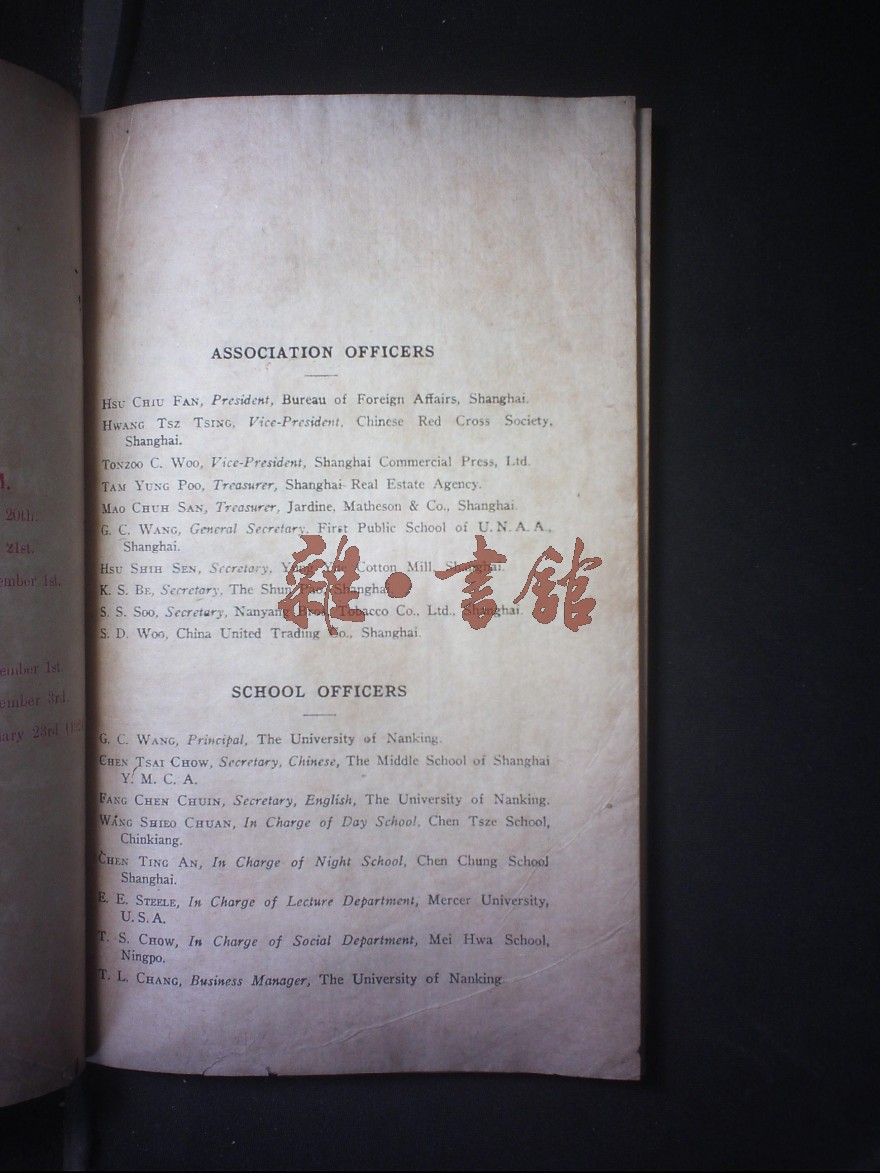 ASSOCIATION OFFICERS
HSU CHIU FAN, President, Bureau of Foreign Affairs, Shanghai.
HWANG TSZ TSING, Vice-President, Chinese Red Cross Society,
Shanghai.
TONZOO C. WOO, Vice-President, Shanghai Commercial Press, Ltd.
TAM YUNG POO, Treasurer, Shanghai Real Estate Agency.
MAO CHUH SAN, Treasurer, Jardine, Matheson & Co., Shanghai
G. C. WANG, General Secretary, First Public School of U. N. A. A.,
Shanghai.
HSU SHIH SEN, Secretary, Cotton Mill, Shanghai.
K. S. BE, Secretary, The Shun Pao, Shanghai
S. S. SOO, Secretary, Nanyang Bros. Tobacco Co., Ltd., Shanghai.
S. D. WOO, China United Trading Co., Shanghai.
雜·書館
SCHOOL OFFICERS
G. C. WANG, Principal, The University of Nanking.
CHEN TSAI CHOW, Secretary, Chinese, The Middle School of Shanghai
Y. M. C. A.
FANG CHEN CHUIN, Secretary, English, The University of Nanking.
WANG SHIEO CHUAN, In Charge of Day School, Chen Tsze School,
Chinkiang.
CHEN TING AN, In Charge of Night School, Chen Chung School
Shanghai.
E. E. STEELE, In Charge of Lecture Department, Mercer University,
U. S. A.
T. S. CHOW, In Charge of Social Department, Mei Hwa School,
Ningpo.
T. L. CHANG, Business Manager, The University of Nanking
20th.
21st.
ember 1st.
ember 1st.
ember 3rd.
ary 23rd